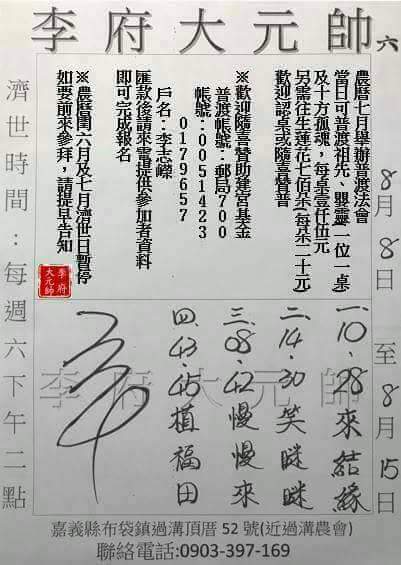 李府大元帥 六
農曆七月舉辦普渡法會
當日可普渡祖先、嬰靈(一位一桌)
及十方孤魂，每桌壹仟伍元
另需往生蓮花七佰朵(每朵二十元)
歡迎認桌或隨喜贊普
※歡迎隨喜贊助建宮基金
普渡帳號:郵局700
帳號:0051423
0179657
戶名:李志嶸
匯款後請來電提供參加者資料
即可完成報名
※農曆閏六月及七月濟世日暫停
如要前來參拜，請提早告知
李府
大元帥
8月8日至8月15日
一.10.28來結緣
二.14.30笑瞇瞇
三.08.42慢慢來
四.43.45植福田
李府大元帥
濟世時間:每週六下午二點
嘉義縣布袋鎮過溝頂厝52號(近過溝農會)
聯絡電話:0903-397-169